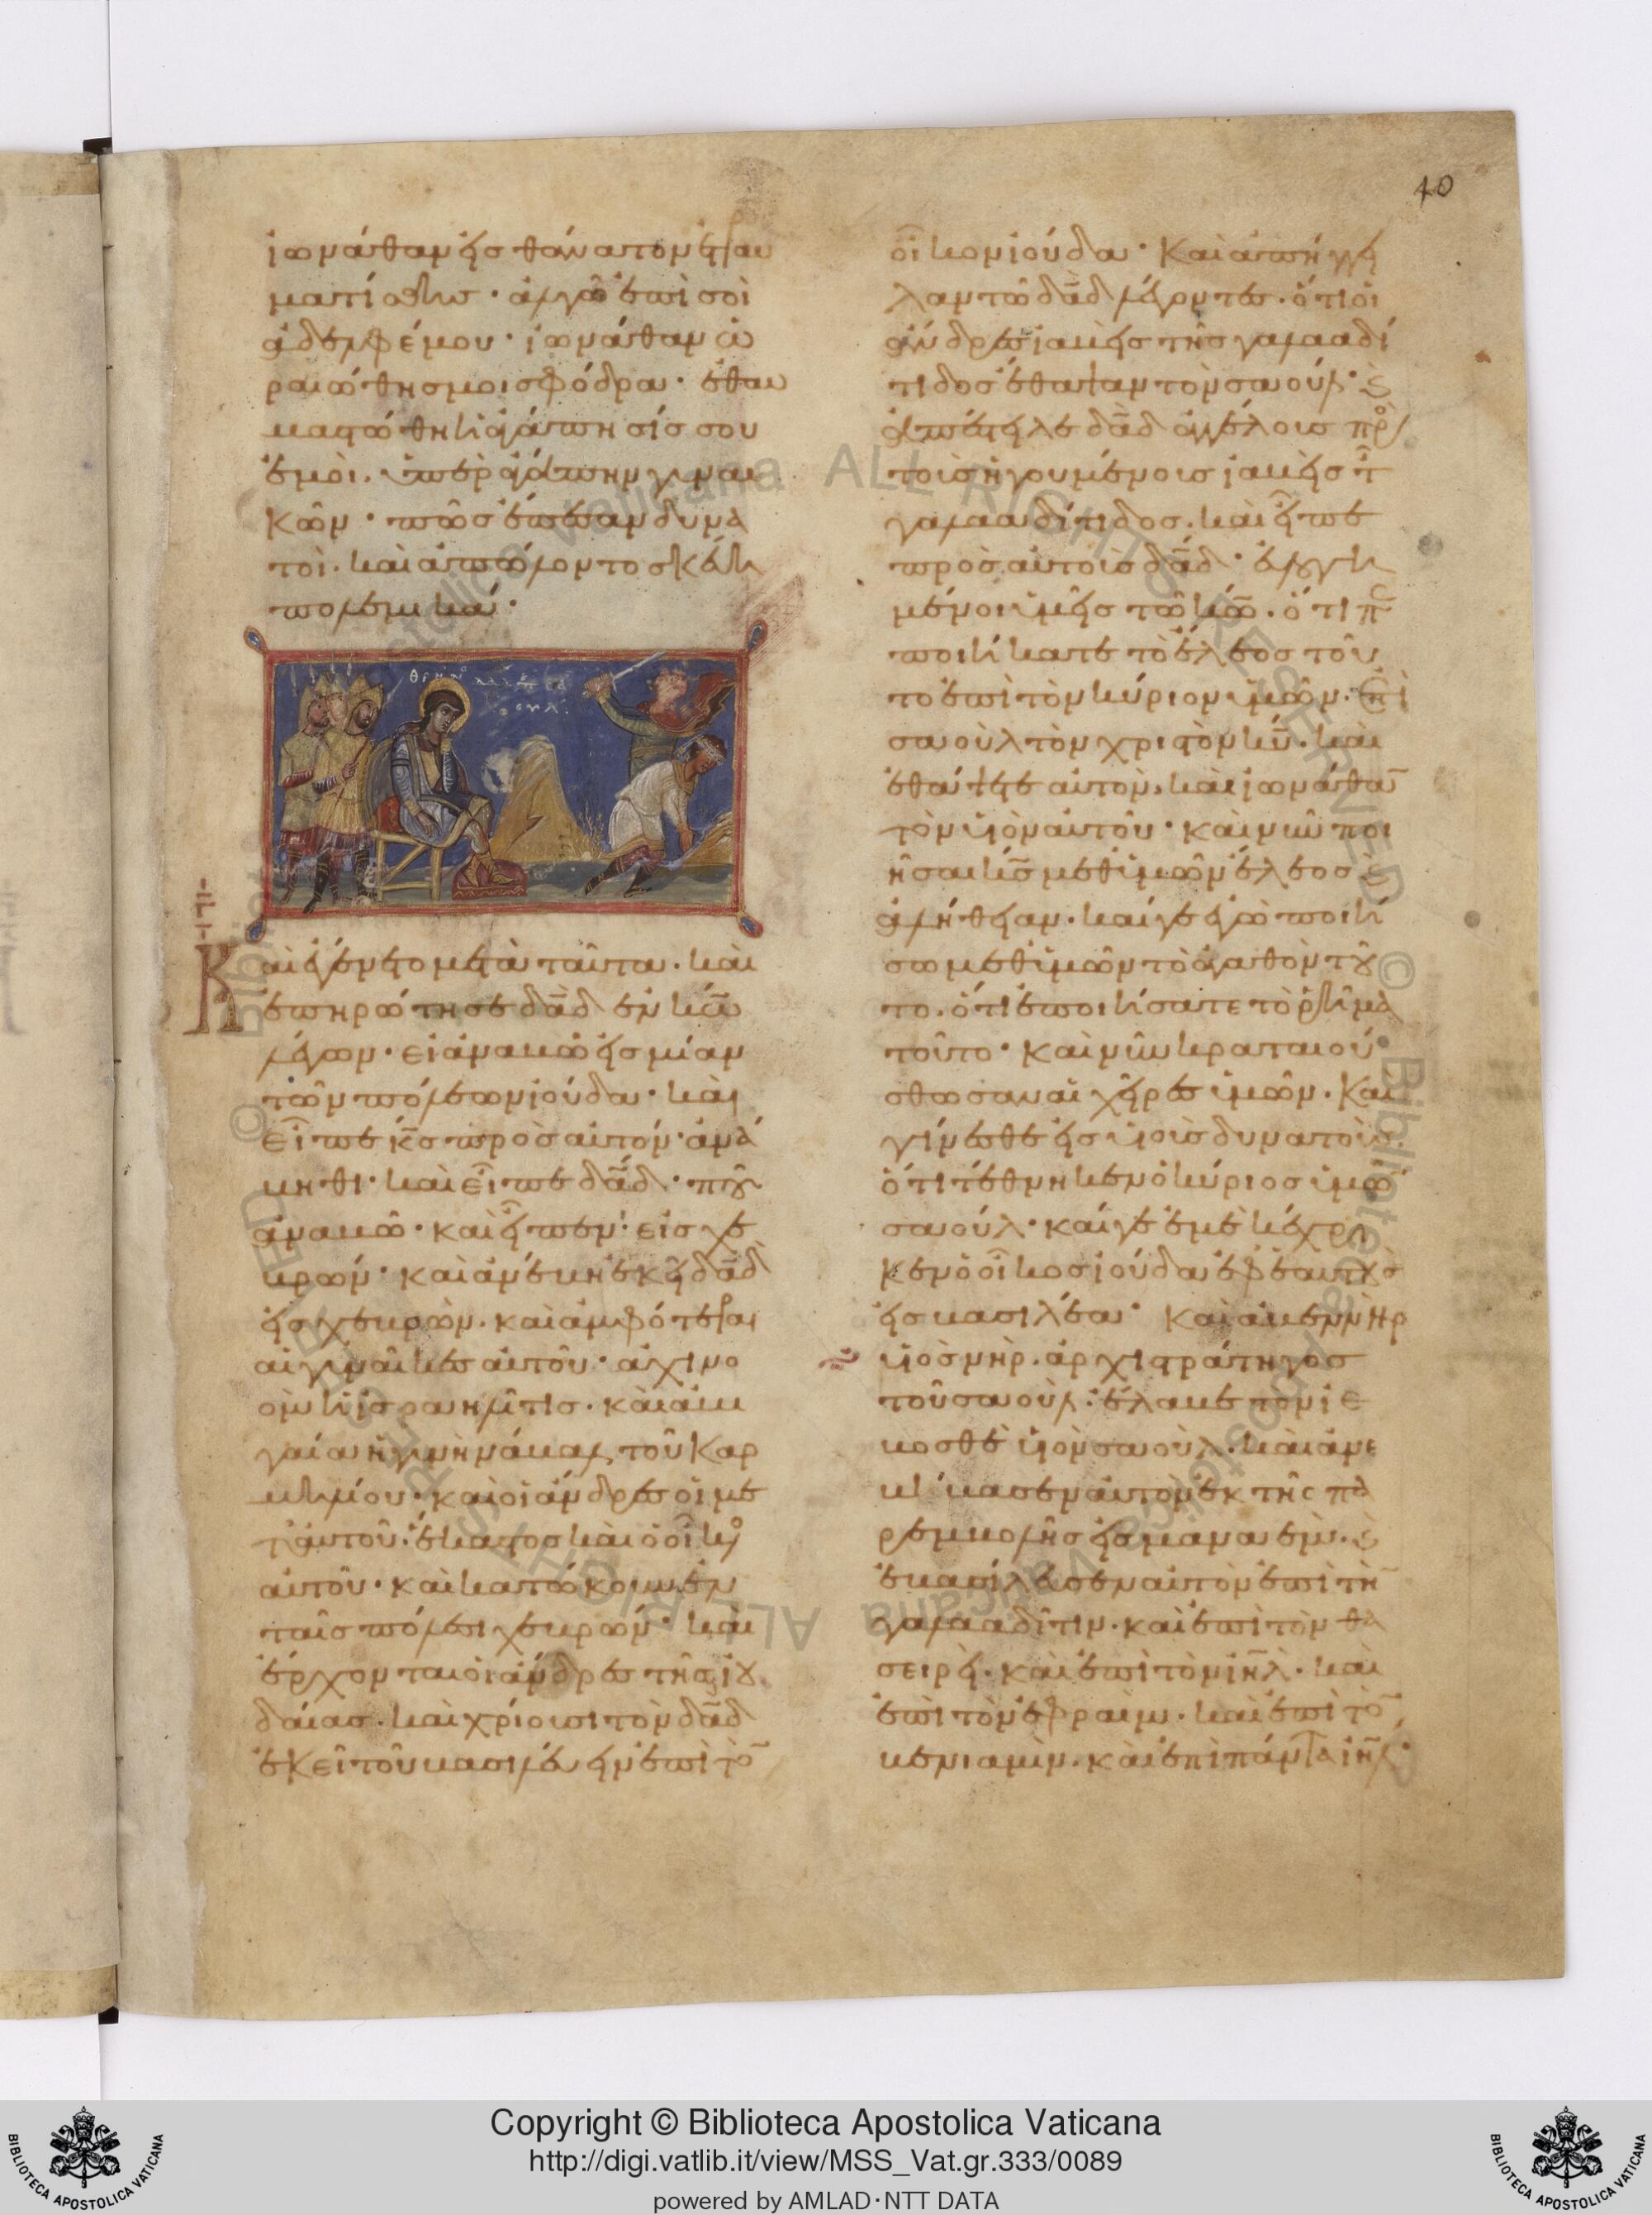 40
ἰωνάθαν εἰς θάνατον ἐτραυ
ματίσθης· ἀλγῶ ἐπὶ σοὶ
ἀδελφέ μου· ἰωνάθαν ὡ
ραιώθης μοι σφόδρα· ἐθαυ
μαστώθη ἡ ἀγάπησίς σου
ἐμοὶ. ὑπὲρ ἀγάπην γυναι
κῶν· πῶς ἔπεσαν δυνα
τοὶ. καὶ ἀπώλοντο σκεύη
πολεμικά·
Καὶ ἐγένετο μετὰ ταῦτα. καὶ
ἐπηρώτησε δᾱδ ἐν κω
λέγων· εἰ ἀναβῶ εἰς μίαν
τῶν πόλεων ἰούδα· καὶ
εἶπε κς πρὸς αὐτόν· ἀνά
βηθι· καὶ εἶπε δᾱδ· ποῦ
ἀναβῶ· καὶ εἶπεν· εἰς χε
βρών· καὶ ἀνέβη ἐκεῖ δᾱδ
εἰς χεβρὼν. καὶ ἀμφότεραι
αἱ γυναῖκες αὐτοῦ· ἀχινο
ὸμ ἡ ἰσραηλῖτις. καὶ ἀβι
γαία ἡ γυνὴ νάβαλ τοῦ καρ
μηλίου· καὶ οἱ ἄνδρες οἱ με
τ αὐτοῦ· ἕκαστος καὶ ὁ οἶκος
αὐτοῦ· καὶ κατώκουν ἐν
ταῖς πόλεσι χεβρών· καὶ
ἔρχονται οἱ ἄνδρες τῆς ἰου
δαίας. καὶ χρίουσι τὸν δᾱδ
ἐκεῖ τοῦ βασιλεύειν ἐπὶ τὸν
οἶκον ἰούδα· Καὶ ἀπήγγει
λαν τῶ δᾱδ λέγοντες. ὅτι οἱ
ἄνδρες ἰαβὶς τῆς γαλααδί
τιδος ἔθαψαν τὸν σαούλ· καὶ
ἀπέστειλε δᾱδ ἀγγέλους πρὸς
τοὺς ἡγουμένους ἰαβεὶς τῆς
γαλααδίτιδος. καὶ εἶπε
πρὸς αὐτοὺς δᾱδ· εὐλογη
μένοι ὑμεῖς τῶ κω. ὅτι πε
ποιήκατε τὸ ἔλεος τοῦ
το ἐπὶ τὸν κύριον ὑμῶν. ἐπὶ
σαοὺλ τὸν χριστὸν κυ. καὶ
ἐθάψατε αὐτὸν. καὶ ἰωνάθαν
τὸν υἱὸν αὐτοῦ· καὶ νῦν ποι
ῆσαι κς μεθ ὑμῶν ἔλεος καὶ
ἀλήθειαν. καί γε ἐγὼ ποιή
σω μεθ ὑμῶν τὸ ἀγαθὸν τοῦ
το. ὅτι ἐποιήσατε τὸ ῥῆμα
τοῦτο· καὶ νῦν κραταιού
σθωσαν αἱ χεῖρες ὑμῶν. καὶ
γίνεσθε εἰς υἱοὺς δυνατοὺς.
ὅτι τέθνηκεν ὁ κύριος ὑμῶν
σαούλ· καί γε ἐμὲ κέχρι
κεν ὁ οἶκος ἰούδα ἐφ ἑαυτοὺς
εἰς βασιλέα· Καὶ ἀβεννὴρ
υἱὸς νὴρ. ἀρχιστράτηγος
τοῦ σαοὺλ. ἔλαβε τὸν ἰε
βοσθὲ υἱὸν σαοὺλ. καὶ ἀνε
βίβασεν αὐτὸν ἐκ τῆς πα
ρεμβολῆς εἰς μαναεὶμ. καὶ
ἐβασίλευσεν αὐτὸν ἐπὶ τὴν
γαλααδῖτιν. καὶ ἐπὶ τὸν θα
σειρεί. καὶ ἐπὶ τὸν ιηλ. καὶ
ἐπὶ τὸν ἐφραὶμ. καὶ ἐπὶ τὸν
βενιαμὶν. καὶ ἐπὶ πάντα ιηλ·
Copyright © Biblioteca Apostolica Vaticana
http://digi.vatlib.it/view/MSS_Vat.gr.333/0089
powered by AMLAD·NTT DATA
BIBLIOTECA APOSTOLICA VATICANA
BIBLIOTECA APOSTOLICA VATICANA